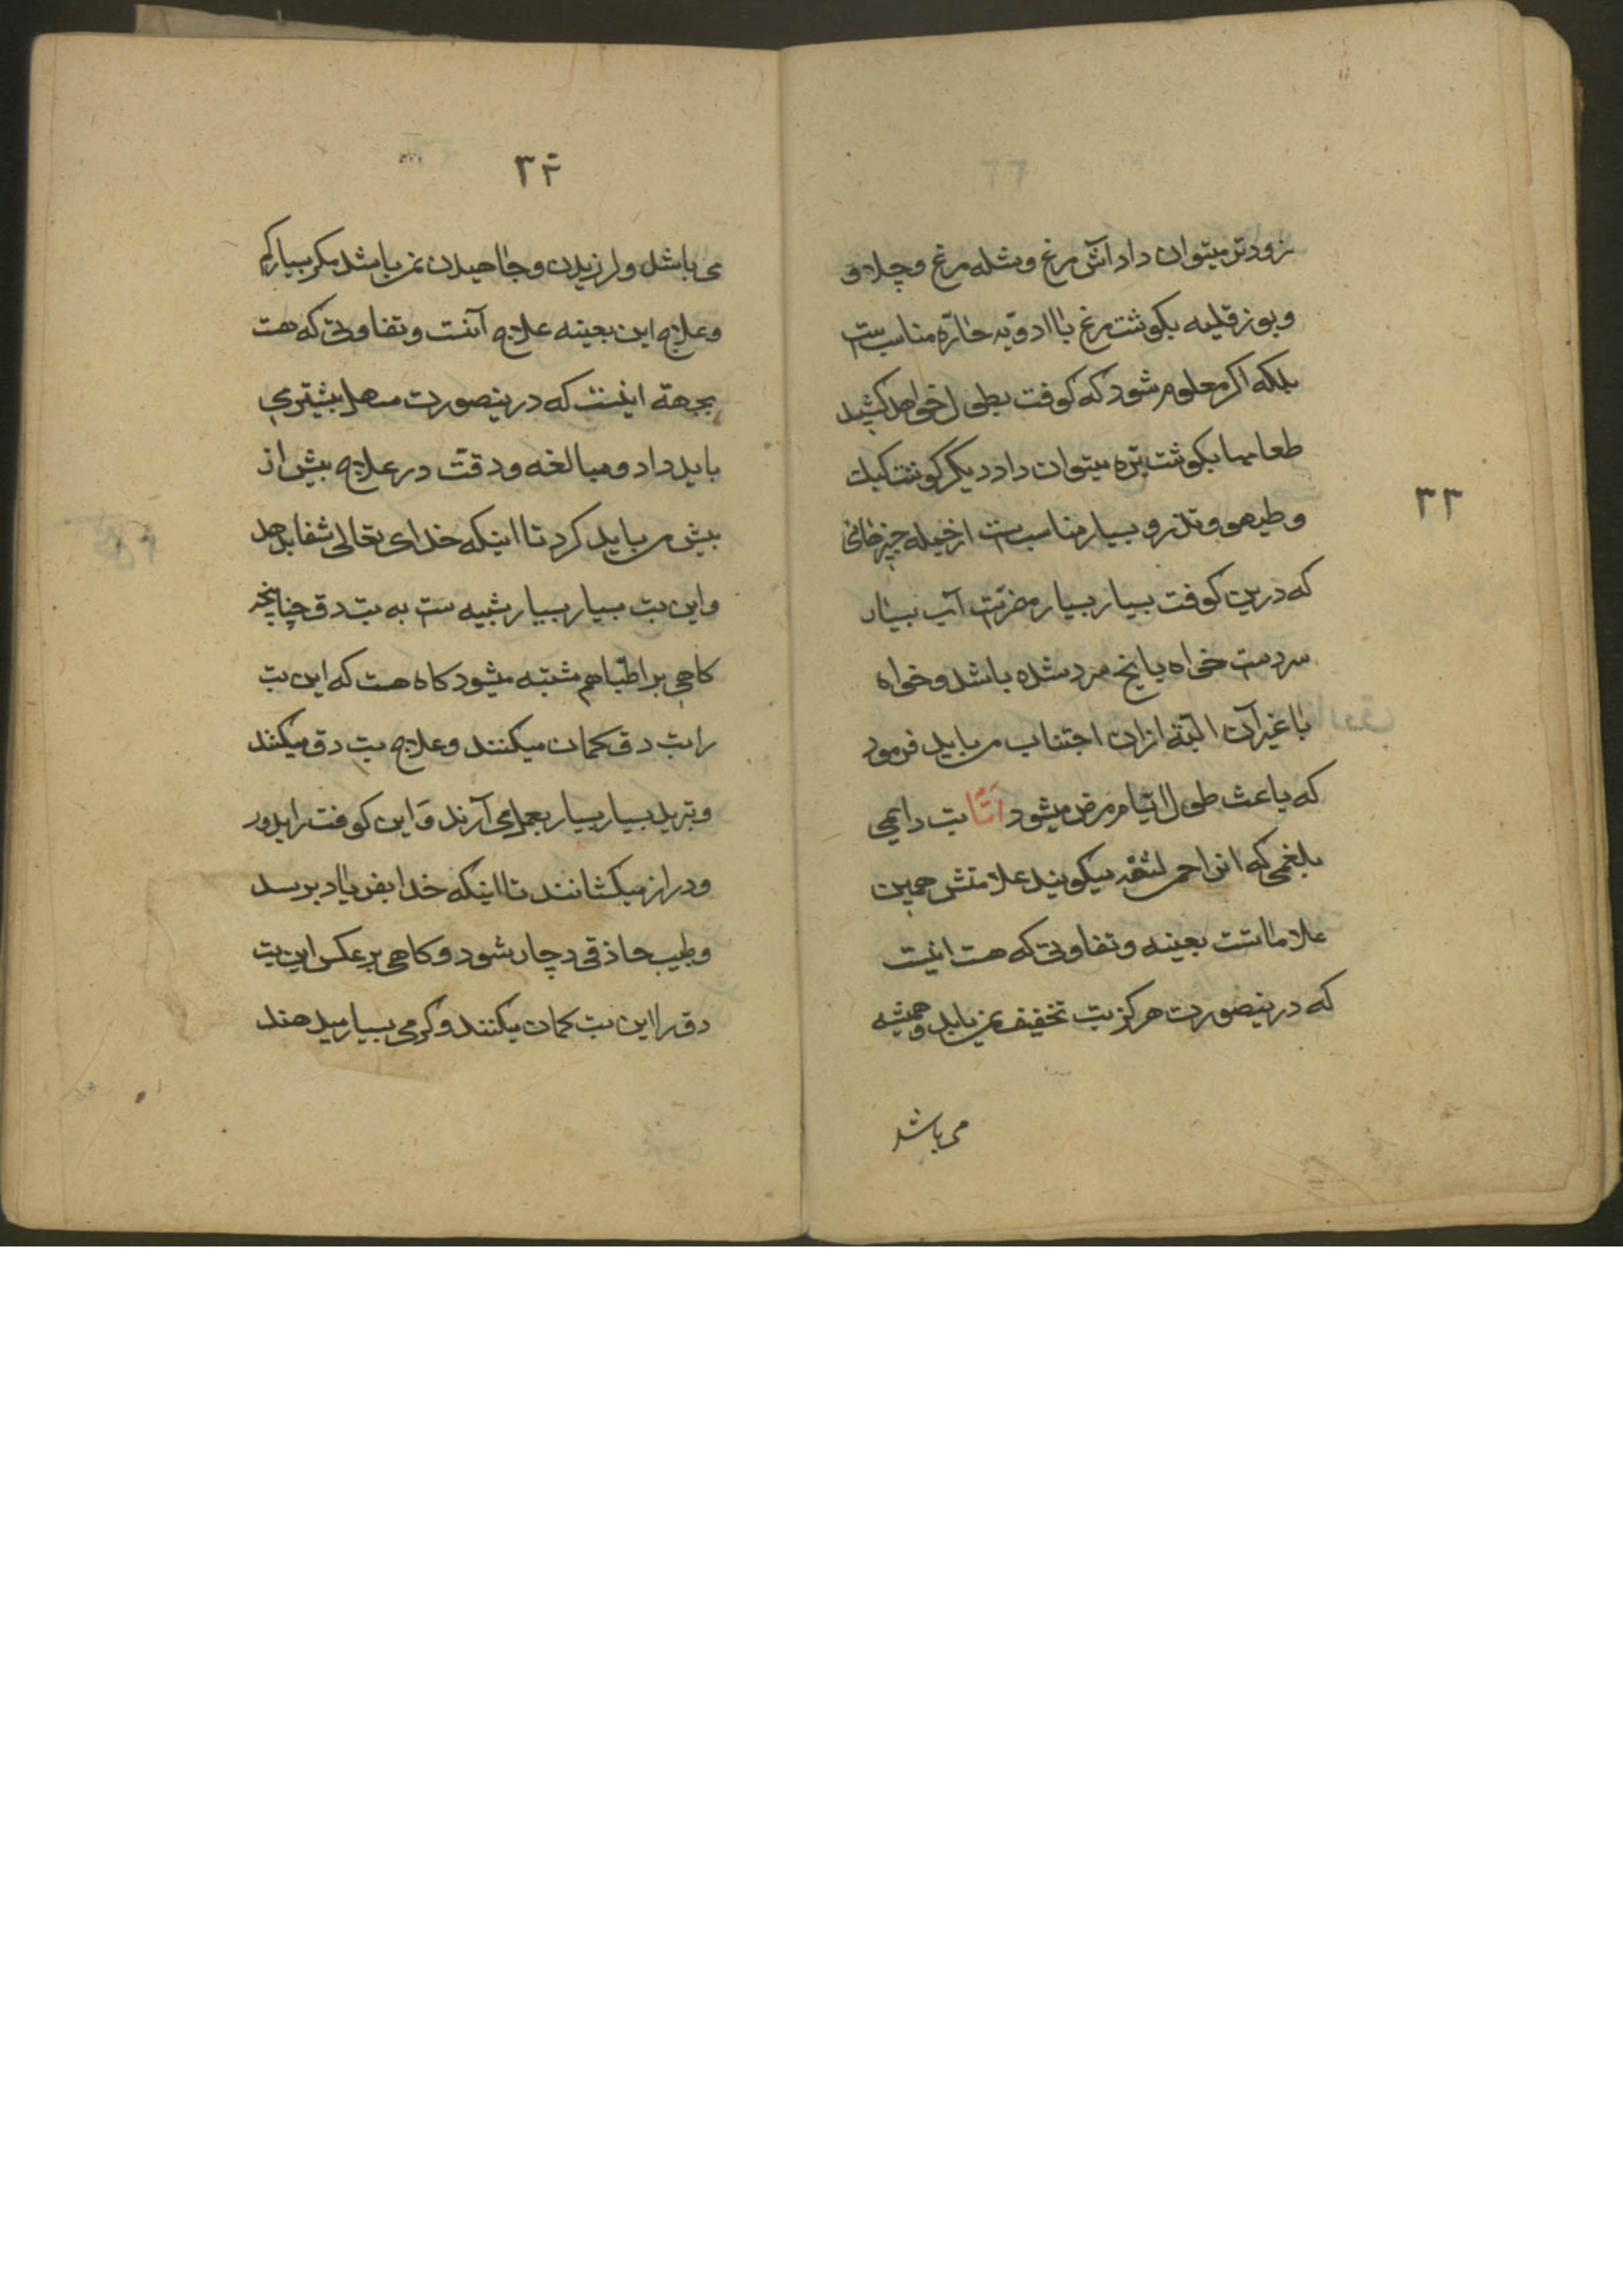 زودتر میتوان داد آش مرغ و شله مرغ و چلاو
و یوز قلیه بکوشت مرغ با ادویه حارّه مناسب ست
بلکه اکر معلوم شود که کوفت بطول خواهد کشید
طعامها بکوشت بره میتوان داد دیکر کوشت کبك
و طیهو و تذرو بسیار مناسب ست از جمله چیزهائی
که درین کوفت بسیار بسیار مضرّت آب بسیار
سردست خواه با یخ سرد شده باشد و خواه
با غیر آن البتّه ازان اجتناب می باید فرمود
که باعث طول ایّام مرض میشود امّا تب دایمی
بلغمی که انرا حمی لثقه میکویند علامتش همین
علاماتست بعینه و تفاوتی که هست اینست
که درینصورت هرکز تب تخفیف نمی یابد و همیشه
می باشد
۳۳
۳۴
می باشد و لرزیدن و جاهیدن نمی باشد مکر بسیار کم
و علاج این بعینه علاج آنست و تفاوتی که هست
بجهة اینست که درینصورت مسهل بیشتری
باید داد و مبالغه و دقّت در علاج بیش از
بیش می باید کرد تا اینکه خدای تعالی شفا بدهد
و این تب بسیار بسیار شبیه ست به تب دق چنانچه
کاهی بر اطبّا هم مشتبه میشود کاه هست که این تب
را تب دق کمان میکنند و علاج تب دق میکنند
و تبرید بسیار بسیار بعمل می آرند و این کوفت را بدور
و دراز میکشانند تا اینکه خدا بفریاد برسد
و طبیب حاذقی دچار شود و کاهی بر عکس این تب
دق را این تب کمان میکنند و کرمی بسیار میدهند